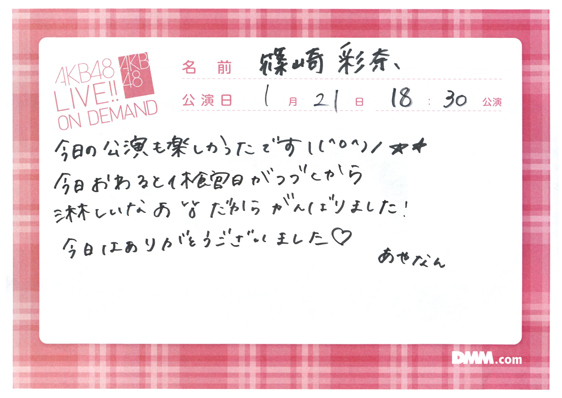 AKB48
LIVE!!
ON DEMAND
AKB
48
名前 篠崎 彩奈
公演日 1月21日 18:30公演
今日の公演も楽しかったですし(^o^)ノ★★
今日おわると休館日がつづくから
淋しいなあ だからがんばりました!
今日はありがとうございました♡
あやなん
DMM.com